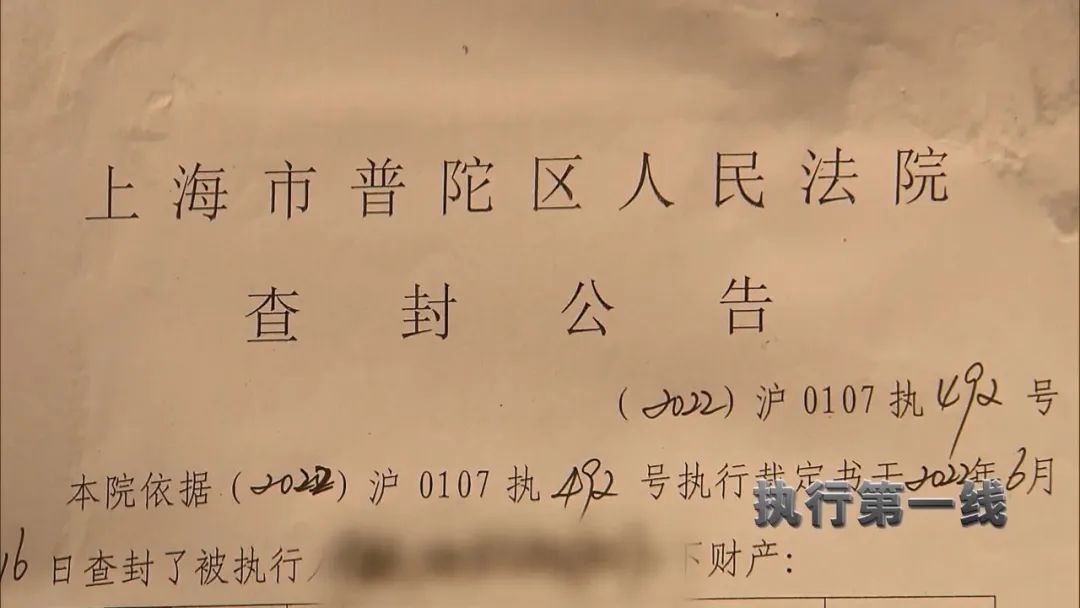 上海市普陀区人民法院
查封公告
(2022)沪0107执492号
本院依据(2022)沪0107执492号执行裁定书于2022年6月
执行第一线
16日查封了被执行人 下财产: